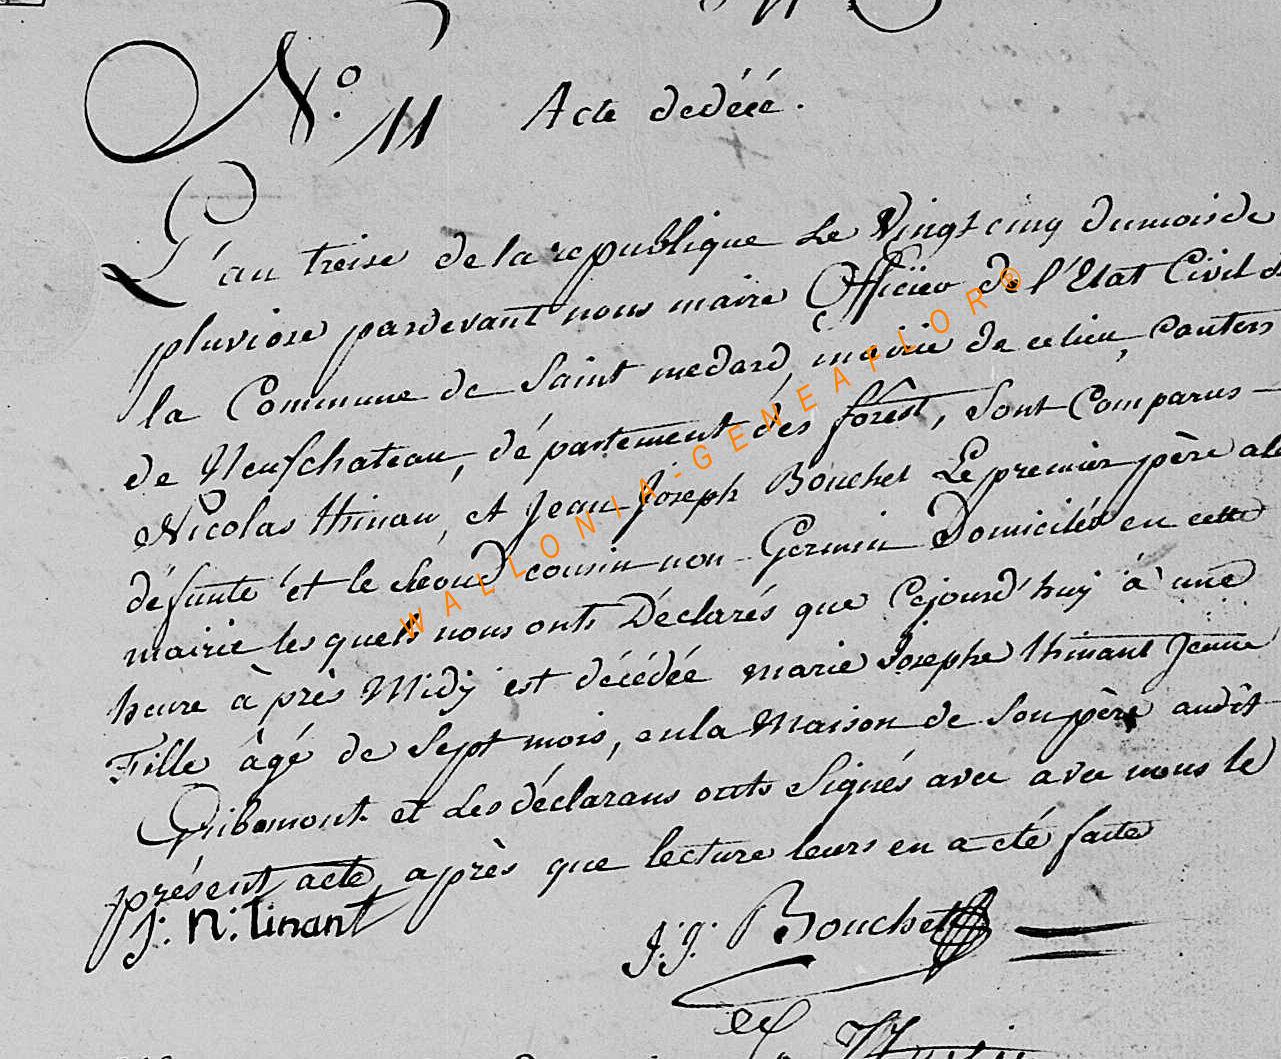 N.º 11 Acte de décé.
L'an treise de la republique Le Vingt cinq du mois de
pluviose pardevant nous maire Officier de l'Etat Civil de
la Commune de Saint medard, mairie de ce lieu, Canton
de Neufchateau, département dés forêst, Sont Comparus
Nicolas thinant, et Jean Joseph Bouchet Le premier père a la
défunte et le second cousin non Germin Domiciliés en cette
mairie lesquels nous onts Déclarés que Cejourd'huy à une
heure à près Midÿ est décédée marie Josephe thinant Jeune
Fille âgé de Sept mois, en la Maison de Son père audit
Gribomont et Les déclarans onts Signés avec avec nous le
présent acte après que lecture leurs en a eté faite
J: N: tinant
J: J: Bouchet
WALLONIA-GENEAFLOR®